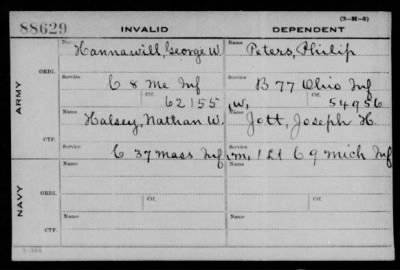 (3-H-5)
88629 INVALID DEPENDENT
ARMY
ORIG.
Name Hannawill, George W. Name Peters, Philip
Service C 8 Me Inf Service B 77 Ohio Inf
Ctf. 62155 W, Ctf. 54956
CTF.
Name Halsey, Nathan W. Name Jott, Joseph H.
Service C 37 Mass Inf m, 121 C 9 Mich Inf
NAVY
ORIG.
Name Name
Service Ctf. Service Ctf.
CTF.
Name Name
Service Service